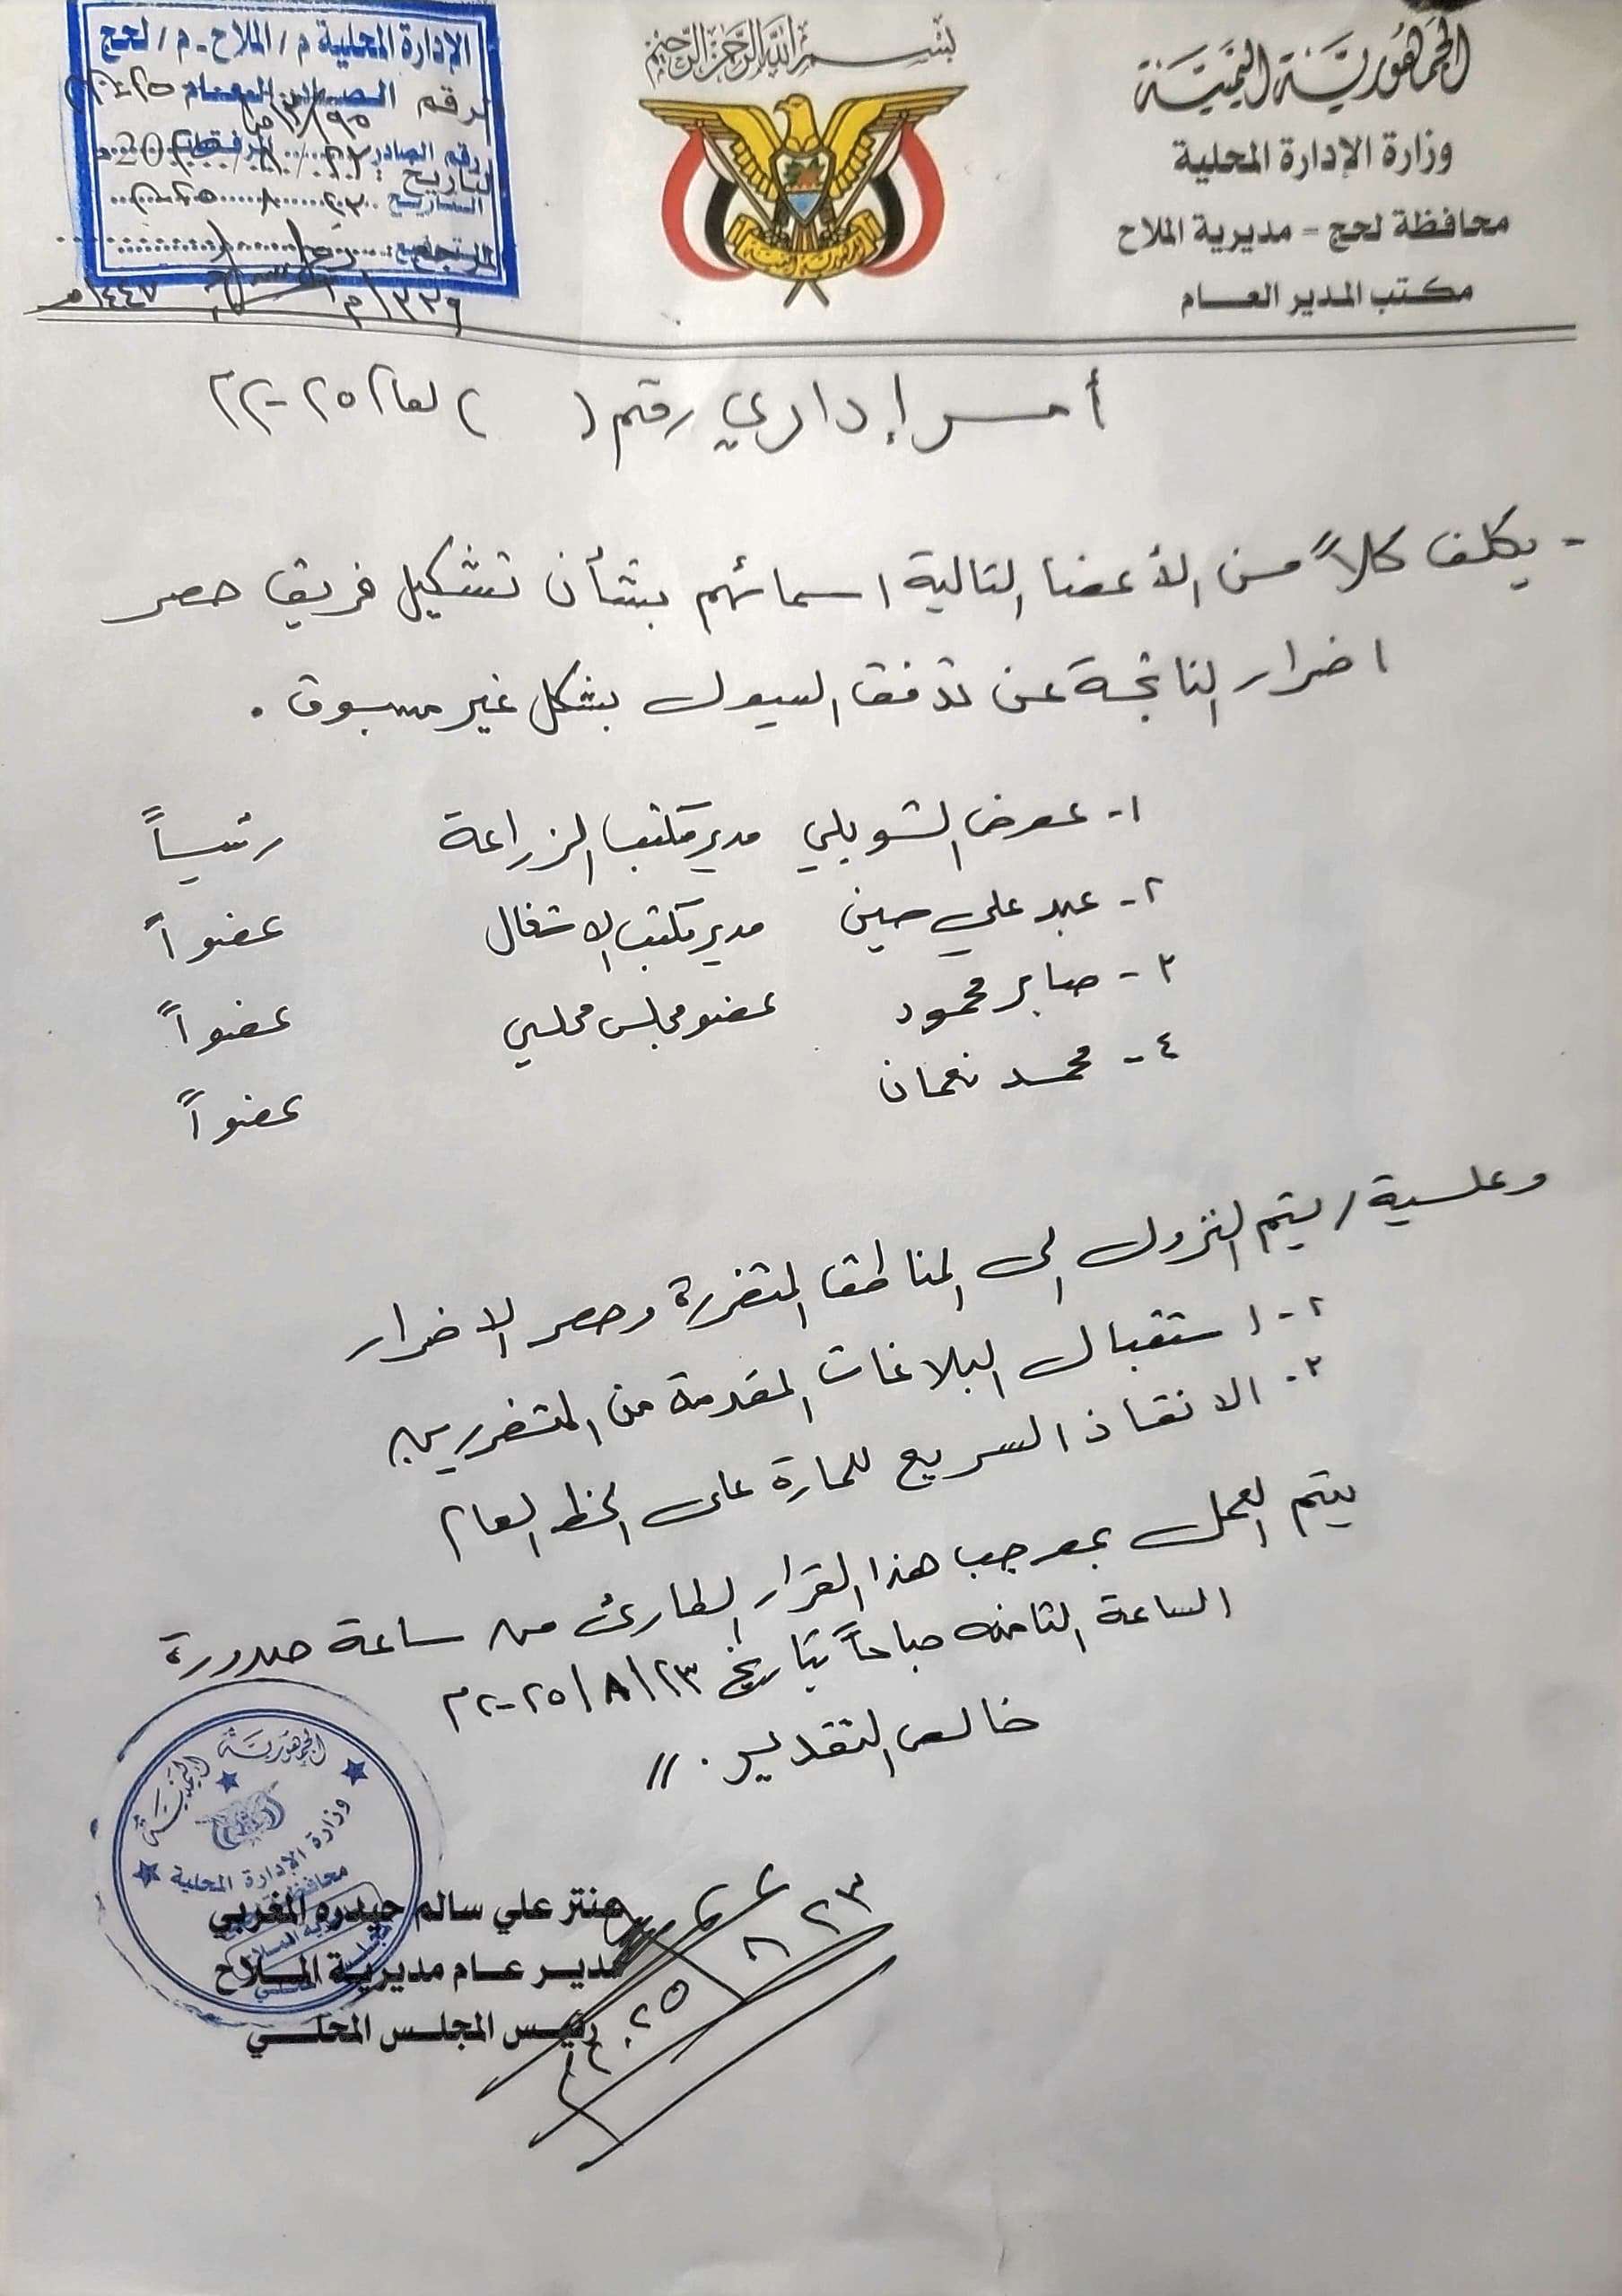 بسم الله الرحمن الرحيم
الجمهورية اليمنية
وزارة الإدارة المحلية
محافظة لحج - مديرية الملاح
مكتب المدير العـــام
الإدارة المحلية م/ الملاح - م/ لحج
رقم الصادر العام
رقم الصادر
التاريخ
أمر إداري رقم ( ) لعام ٢٠٢٥
- يكلف كلاً من الأعضا التالية اسمائهم بشأن تشكيل فريق حصر
اضرار الناتجة عن تدفق السيول بشكل غير مسبوق .
١- عوض الشوبلي مدير مكتب الزراعة رئيساً
٢- عبد علي حسين مدير مكتب الاشغال عضواً
٣- صابر محمود عضو مجلس محلي عضواً
٤- محمد نعمان عضواً
وعلية / يتم النزول الى المناطق المتضررة وحصر الاضرار
٢- استقبال البلاغات المقدمة من المتضررين
٣- الانقاذ السريع للمارة على الخط العام
يتم العمل بموجب هذا القرار الطارئ من ساعة صدورة
الساعة الثامنه صباحاً بتاريخ ٢٣/٨/٢٠٢٥م
خالص التقدير . //
الجمهورية اليمنية
وزارة الإدارة المحلية
محافظة
عنتر علي سالم حيدره المغربي
مديـــر عـــام مديريـــة المـــلاح
رئيـــس المجلـــس المحلـــي
٢٣
٨
٢٠٢٥